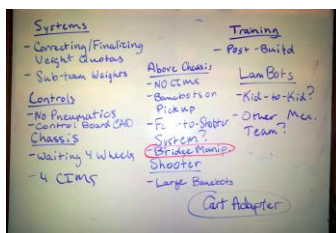 Systems
- Correcting/Finalizing
Weight Quotas
- Sub-team Weights
Controls
- No Pneumatics
- Control Board CAD
Chassis
- Waiting 4 Wheels
- 4 CIMS
Above Chassis
- NO CIMS
- Banebots on
Pickup
-to-Shooter
System?
- Bridge Manip
Shooter
- Large Banebots
Training
- Post-Build
Lam Bots
- Kid-to-Kid?
- Other Mes.
Team?
Cart Adapter